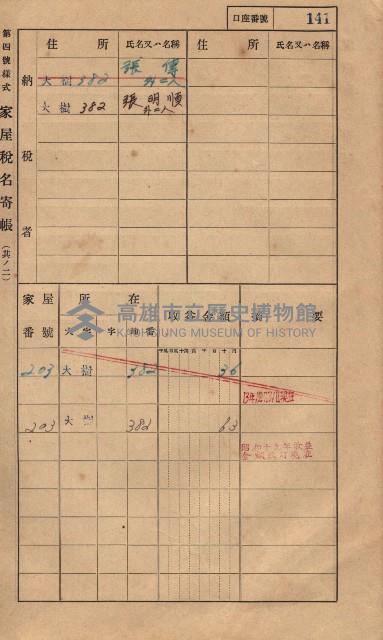 口座番號 141
第四號樣式 家屋稅名寄帳 (其ノ二)
納稅者
住所 氏名又ハ名稱 住所 氏名又ハ名稱
大樹 382 張傳 外二人
大樹 382 張明順 外二人
家屋番號 所在 大字 字 地番 收益金額 摘要
203 大樹 382 36
203 大樹 382 63
高雄市立歷史博物館
KAOHSIUNG MUSEUM OF HISTORY